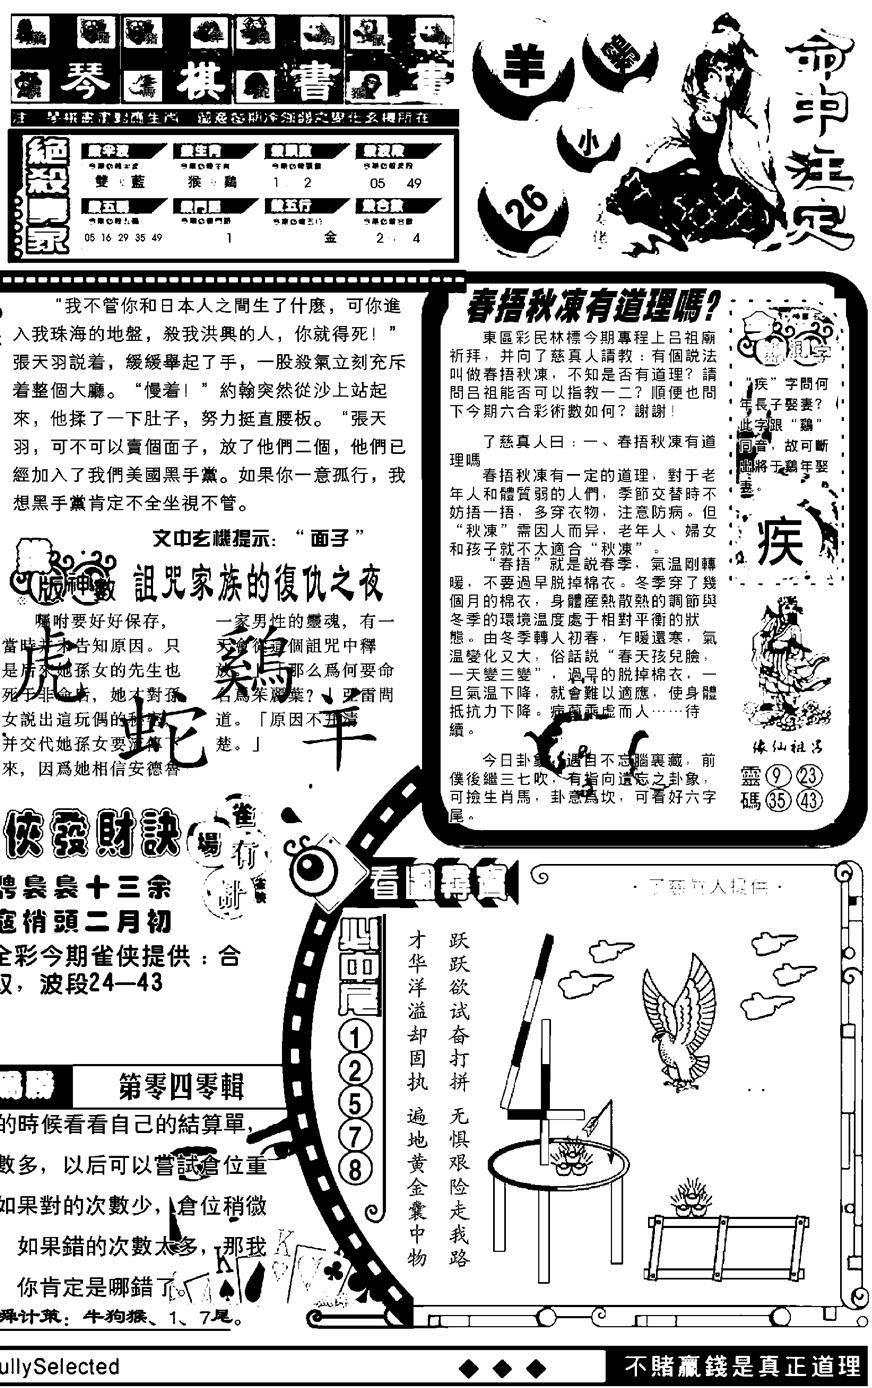 琴棋書畫
命中注定
羊
鷄
小
26
絕殺專家
雙 藍
猴 鷄
1 2
05 49
殺五行
05 16 29 35 49
1
金
2 4
“我不管你和日本人之間生了什麽，可你進
入我珠海的地盤，殺我洪興的人，你就得死！”
張天羽説着，緩緩舉起了手，一股殺氣立刻充斥
着整個大廳。“慢着！”約翰突然從沙上站起
來，他揉了一下肚子，努力挺直腰板。“張天
羽，可不可以賣個面子，放了他們二個，他們已
經加入了我們美國黑手黨。如果你一意孤行，我
想黑手黨肯定不全坐視不管。
文中玄機提示：“面子”
版神數
詛咒家族的復仇之夜
囑咐要好好保存，
當時并未告知原因。只
是后來她孫女的先生也
死于非命后，她才對孫
女説出這玩偶的秘密，
并交代她孫女要流傳下
來，因爲她相信安德魯
一家男性的靈魂，有一
天會從這個詛咒中釋
那么爲何要命
名爲茱麗葉？」亞雷問
道。「原因不并清
楚。」
虎 鷄
蛇 羊
春捂秋凍有道理嗎?
東區彩民林標今期專程上呂祖廟
祈拜，并向了慈真人請教：有個説法
叫做春捂秋凍，不知是否有道理？請
問呂祖能否可以指教一二？順便也問
下今期六合彩術數如何？謝謝！
了慈真人曰：一、春捂秋凍有道
理嗎
春捂秋凍有一定的道理，對于老
年人和體質弱的人們，季節交替時不
妨捂一捂，多穿衣物，注意防病。但
“秋凍”需因人而异，老年人、婦女
和孩子就不太適合“秋凍”。
“春捂”就是説春季，氣温剛轉
暖，不要過早脱掉棉衣。冬季穿了幾
個月的棉衣，身體産熱散熱的調節與
冬季的環境温度處于相對平衡的狀
態。由冬季轉人初春，乍暖還寒，氣
温變化又大，俗話説“春天孩兒臉，
一天變三變”，過早的脱掉棉衣，一
旦氣温下降，就會難以適應，使身體
抵抗力下降。病菌乘虚而人……待
續。
今日卦象，遇自不忘腦裏藏，前
僕後繼三七吹，有指向遺忘之卦象，
可撿生肖馬，卦意爲坎，可看好六字
尾。
“疾”字問何
年長子娶妻？
此字跟“鷄”
同音，故可斷
出將于鷄年娶
妻。
疾
像仙祖呂
靈碼 9 23 35 43
俠發財訣
雀有計
場
雀俠
娉裊裊十三余
蔻梢頭二月初
全彩今期雀俠提供：合
双，波段24—43
第零四零輯
的時候看看自己的結算單，
數多，以后可以嘗試倉位重
如果對的次數少，倉位稍微
如果錯的次數太多，那我
你肯定是哪錯了
舜计策：牛狗猴、1、7尾。
看圖尋寶
必中尾
1
2
5
7
8
跃跃欲试奋打拼 无惧艰险走我路
才华洋溢却固执 遍地黄金囊中物
·了慈真人提供·
ullySelected
◆ ◆ ◆
不賭贏錢是真正道理